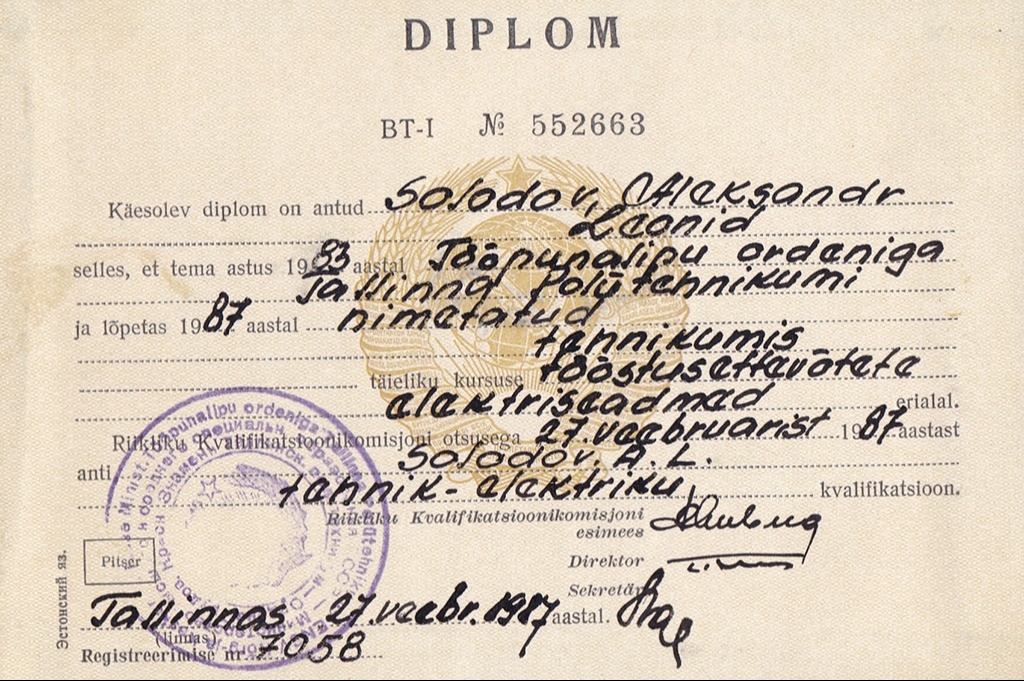 DIPLOM
BT-I № 552663
Käesolev diplom on antud Solodov, Aleksandr
Leonid
selles, et tema astus 1983 aastal Tööpunalipu ordeniga
Tallinna Polütehnikumi
ja lõpetas 1987 aastal nimetatud
tehnikumis
täieliku kursuse tööstusettevõtete
elektriseadmed erialal.
Riikliku Kvalifikatsioonikomisjoni otsusega 27. veebruarist 1987 aastast
anti Solodov, A. L.
tehnik-elektriku kvalifikatsioon.
Riikliku Kvalifikatsioonikomisjoni
esimees
Direktor
Sekretär
Pitser
Tallinnas 27. veebr. 1987 aastal.
(linnas)
Registreerimise nr. 7058
Эстонский яз.